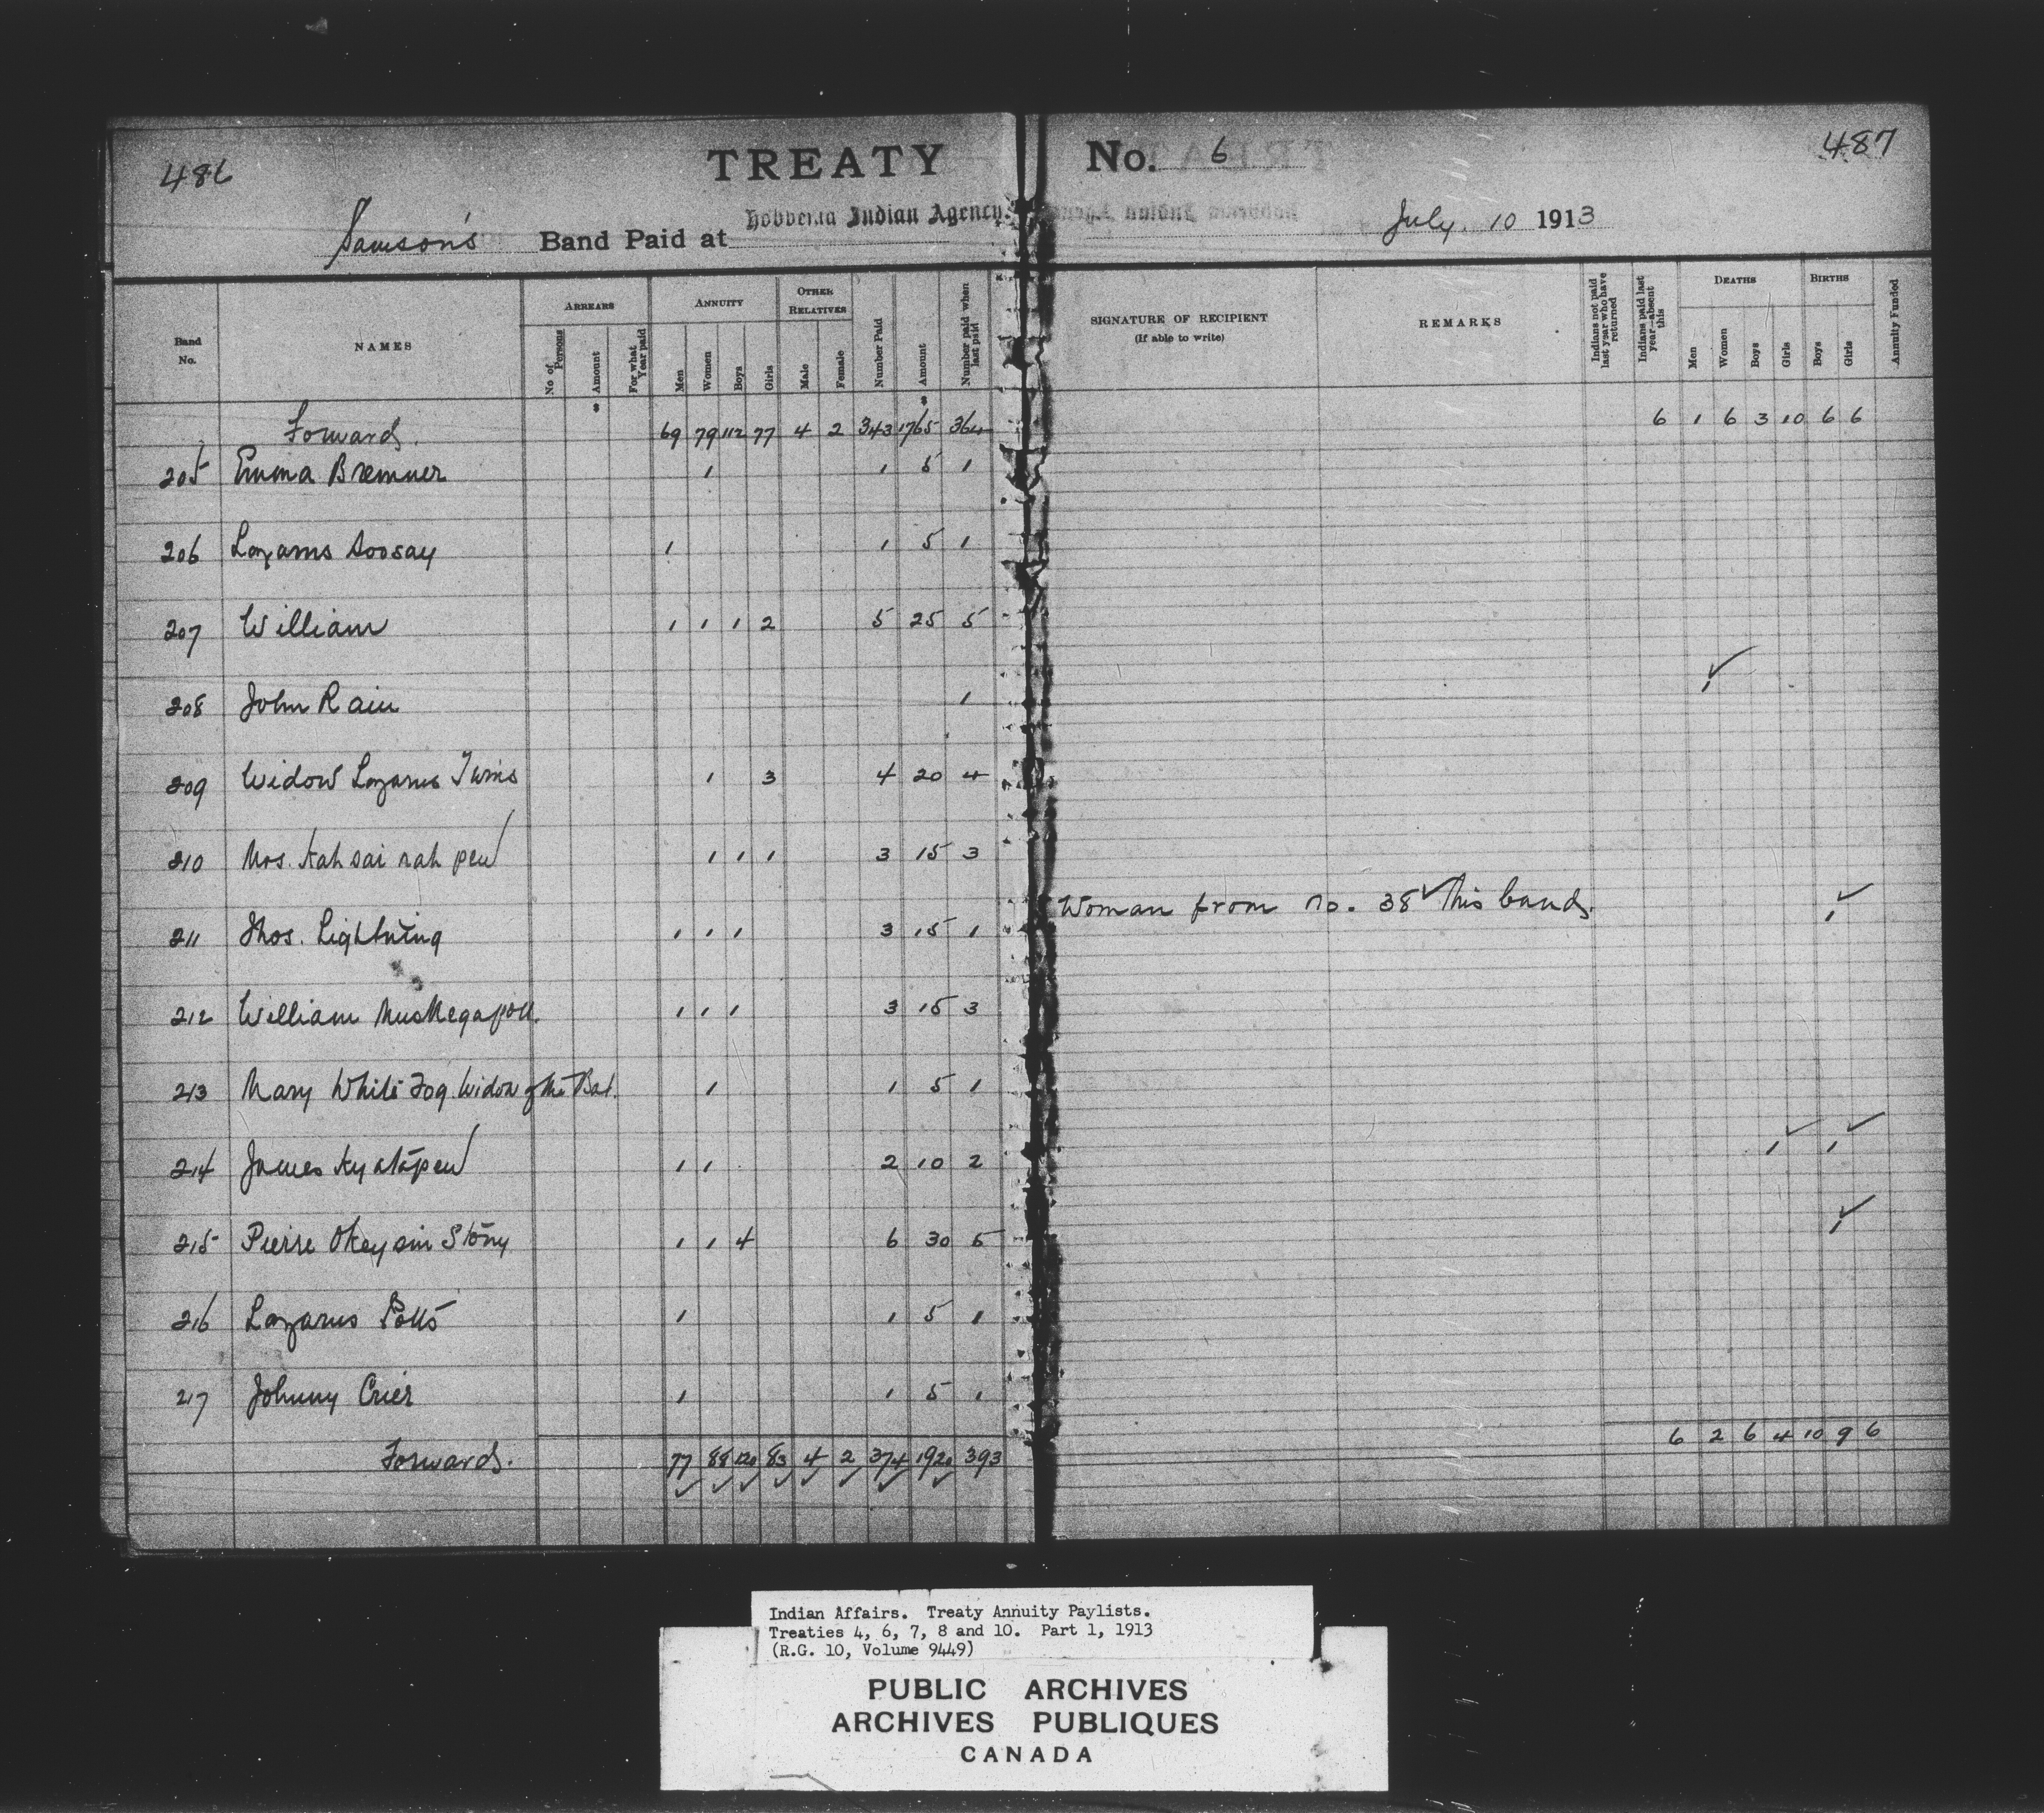 486
TREATY No. 6
487
Samson's Band Paid at Hobbema Indian Agency. July 10 1913
Band No. NAMES ARREARS ANNUITY OTHER RELATIVES Number Paid Amount Number paid when last paid SIGNATURE OF RECIPIENT (If able to write) REMARKS Indians not paid last year who have returned Indians paid last year—absent this DEATHS BIRTHS Annuity Funded
No of Persons Amount For what Year paid Men Women Boys Girls Male Female Men Women Boys Girls Boys Girls
Forward. 69 79 112 77 4 2 343 1765 364 6 1 6 3 10 6 6
205 Emma Bremner 1 1 5 1
206 Lazarus Soosay 1 1 5 1
207 William 1 1 1 2 5 25 5
208 John Rain 1 1 ✓
209 Widow Lazarus Twins 1 3 4 20 4
210 Mrs. Kah sai nah pew 1 1 1 3 15 3
211 Thos. Lightning 1 1 1 3 15 1 Woman from no. 38 ✓ this band. 1 ✓
212 William Muskegapou. 1 1 1 3 15 3
213 Mary White Fog Widow of the Bat. 1 1 5 1
214 James 1 1 2 10 2 1 ✓ 1 ✓
215 Pierre Okeysin Stony 1 1 4 6 30 5 1 ✓
216 Lazarus Potts 1 1 5 1
217 Johnny Crier 1 1 5 1
Forward. 77 88 120 83 4 2 374 1920 393 6 2 6 4 10 9 6
✓ ✓ ✓ ✓ ✓ ✓ ✓ ✓
Indian Affairs. Treaty Annuity Paylists.
Treaties 4, 6, 7, 8 and 10. Part 1, 1913
(R.G. 10, Volume 9449)
PUBLIC ARCHIVES
ARCHIVES PUBLIQUES
CANADA